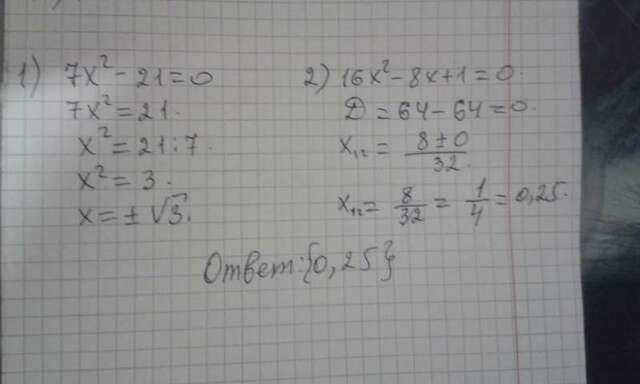 1) 7x² - 21 = 0
7x² = 21.
x² = 21 : 7.
x² = 3.
x = ± √3.
2) 16x² - 8x + 1 = 0.
D = 64 - 64 = 0.
x₁₂ = (8 ± 0)/32.
x₁₂ = 8/32 = 1/4 = 0,25.
Ответ: {0,25}